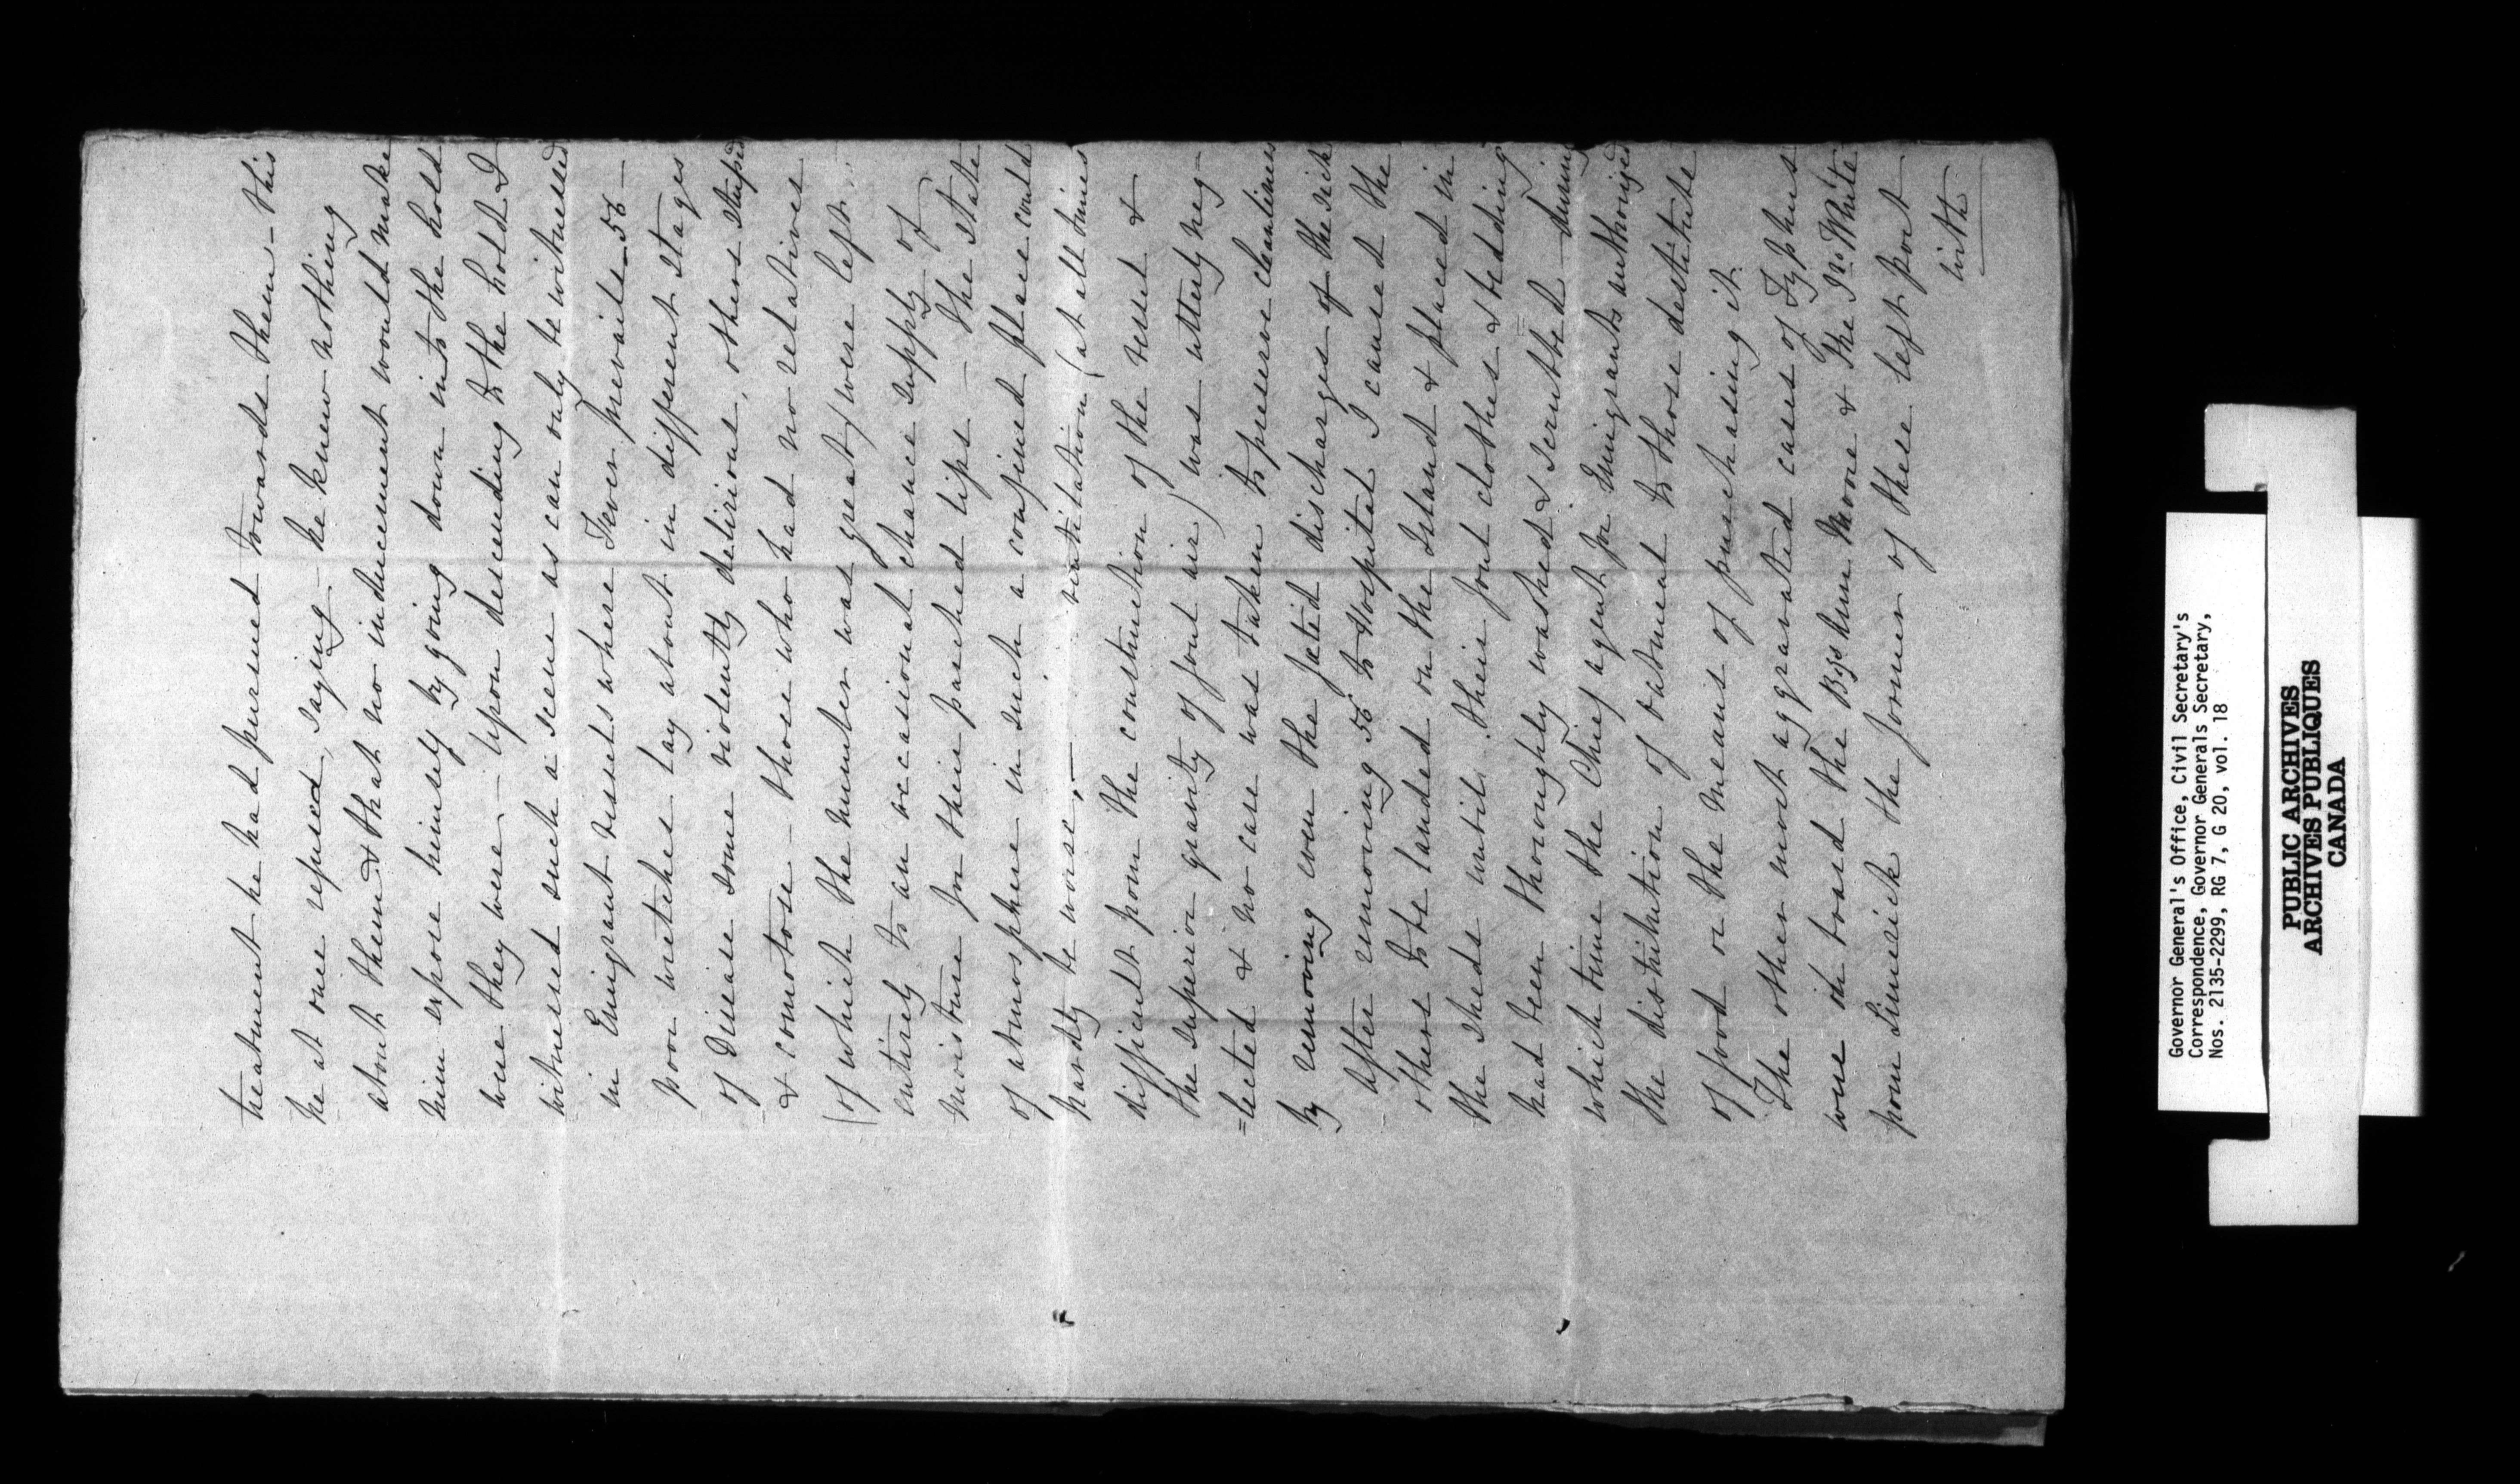 treatment he had pursued towards them - this
he at once refused, saying - he knew nothing
about them & that no inducement would make
him expose himself by going down into the hold
were they were. - Upon descending to the hold I
witnessed such a scene as can only be witnessed
in Emigrant vessels where Fever prevails - 56 -
poor wretches lay about in different stages
of Disease some violently delirious, others stupid
& comotose - those who had no relatives
(of which the number was great) were left
entirely to an occasional chance supply of
moisture for their parched lips - The state
of atmosphere in such a confined place could
hardly be worse, - ventilation (at all times
difficult from the construction of the vessel &
the superior gravity of foul air) was utterly neg-
=lected & no care was taken to preserve cleanliness
by removing even the fœtid discharges of the sick
After removing 56 to Hospital I caused the
others to be landed on the Island & placed in
the sheds until their foul clothes & bedding
had been thoroughly washed & scrubbed - during
which time the Chief agent for Emigrants authorized
the distribution of oatmeal to those destitute
of food or the means of purchasing it
The other most aggravated cases of Typhus
were on board the Bgs Ann Moore & the Jno White
from Limerick the former of these left port
with
Governor General's Office, Civil Secretary's
Correspondence, Governor Generals Secretary,
Nos. 2135-2299, RG 7, G 20, vol. 18
PUBLIC ARCHIVES
ARCHIVES PUBLIQUES
CANADA